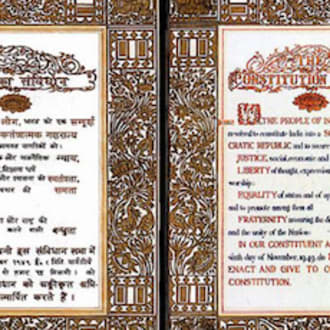 का संविधान
लोग, भारत को एक सम्पूर्ण
गणराज्य
नागरिकों को:
और राजनैतिक न्याय,
धर्म
स्वतंत्रता,
और अवसर की समता
और राष्ट्र की
करने वाली बन्धुता
इस संविधान सभा में
संविधान को अङ्गीकृत, अधि-
करते हैं।
THE
CONSTITUTION
WE, THE PEOPLE OF IN
resolved to constitute India into a
CRATIC REPUBLIC and to secure
JUSTICE, social, economic and
LIBERTY of thought, expression,
worship;
EQUALITY of status and of op
and to promote among them all
FRATERNITY assuring the d
and the unity of the Nation;
IN OUR CONSTITUENT A
sixth day of November, 1949, do
ENACT AND GIVE TO O
CONSTITUTION.